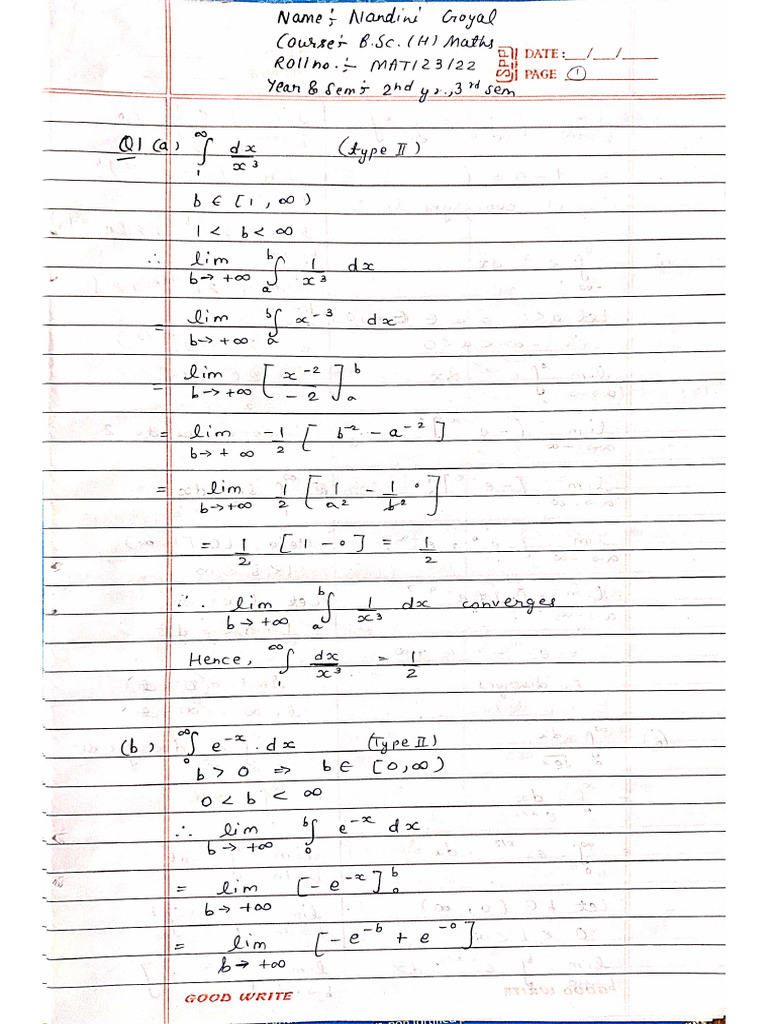 Name:- Nandini Goyal
Course:- B.Sc. (H) Maths
Roll no.:- MAT/23/22
Year & Sem:- 2nd yr., 3rd sem
SPP DATE: __/__/____
PAGE 1
Q1 (a) ∞∫1 dx/x³ (type II)
b ∈ [1, ∞)
1 < b < ∞
∴ lim b→+∞ b∫a 1/x³ dx
= lim b→+∞ b∫a x⁻³ dx
= lim b→+∞ [x⁻²/-2]ᵇₐ
= lim b→+∞ -1/2 [b⁻² - a⁻²]
= lim b→+∞ 1/2 [1/a² - 1/b² 0]
= 1/2 [1 - 0] = 1/2
∴ lim b→+∞ b∫a 1/x³ dx converges
Hence, ∞∫1 dx/x³ = 1/2
(b) ∞∫0 e⁻ˣ . dx (Type II)
b > 0 ⇒ b ∈ [0, ∞)
0 < b < ∞
∴ lim b→+∞ b∫0 e⁻ˣ dx
= lim b→+∞ [-e⁻ˣ]ᵇ₀
= lim b→+∞ [-e⁻ᵇ + e⁻⁰]
GOOD WRITE